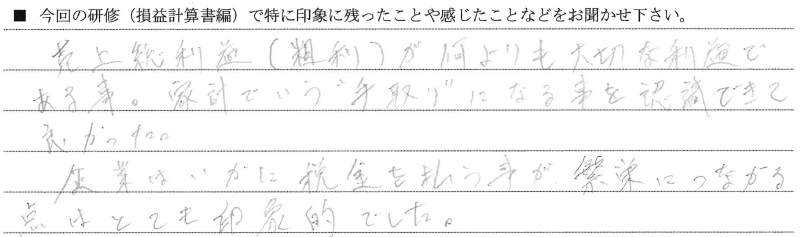 ■ 今回の研修（損益計算書編）で特に印象に残ったことや感じたことなどをお聞かせ下さい。
売上総利益（粗利）が何よりも大切な利益で
ある事。家計でいう“手取り”になる事を認識できて
良かった。
企業はいかに税金を払う事が、繁栄につながる
点はとても印象的でした。